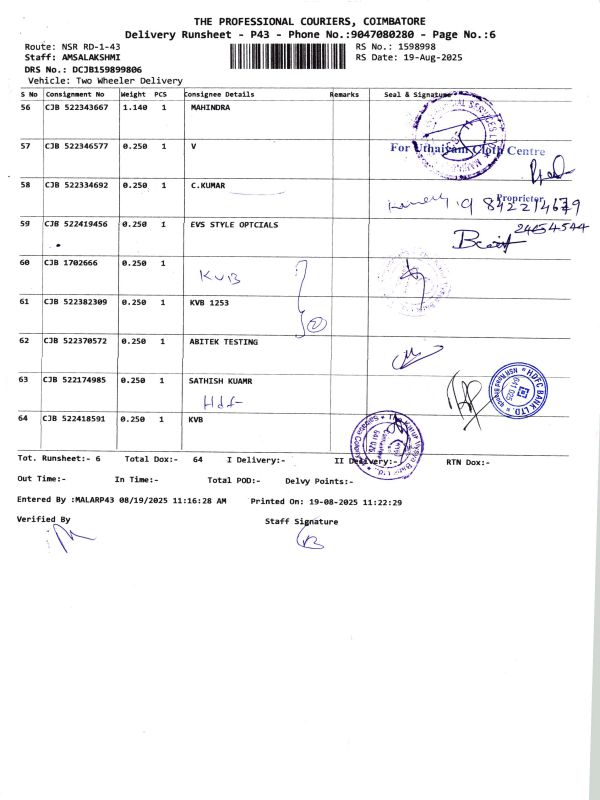 THE PROFESSIONAL COURIERS, COIMBATORE
Delivery Runsheet - P43 - Phone No.:9047080280 - Page No.:6
Route: NSR RD-1-43
RS No.: 1598998
Staff: AMSALAKSHMI
RS Date: 19-Aug-2025
DRS No.: DCJB159899806
Vehicle: Two Wheeler Delivery
S No Consignment No Weight PCS Consignee Details Remarks Seal & Signature
56 CJB 522343667 1.140 1 MAHINDRA
57 CJB 522346577 0.250 1 V
For Uthaiyam Cloth Centre
58 CJB 522334692 0.250 1 C.KUMAR
Proprietor
59 CJB 522419456 0.250 1 EVS STYLE OPTCIALS
24454544
60 CJB 1702666 0.250 1
KVB
61 CJB 522382309 0.250 1 KVB 1253
2
62 CJB 522370572 0.250 1 ABITEK TESTING
63 CJB 522174985 0.250 1 SATHISH KUAMR
Hdf
HDFC BANK LTD. * NSR Road Br
641 025
64 CJB 522418591 0.250 1 KVB
The Karur Vysya Bank Ltd.
Tot. Runsheet:- 6 Total Dox:- 64 I Delivery:- II Delivery:- RTN Dox:-
Out Time:- In Time:- Total POD:- Delvy Points:-
Entered By :MALARP43 08/19/2025 11:16:28 AM Printed On: 19-08-2025 11:22:29
Verified By
Staff Signature